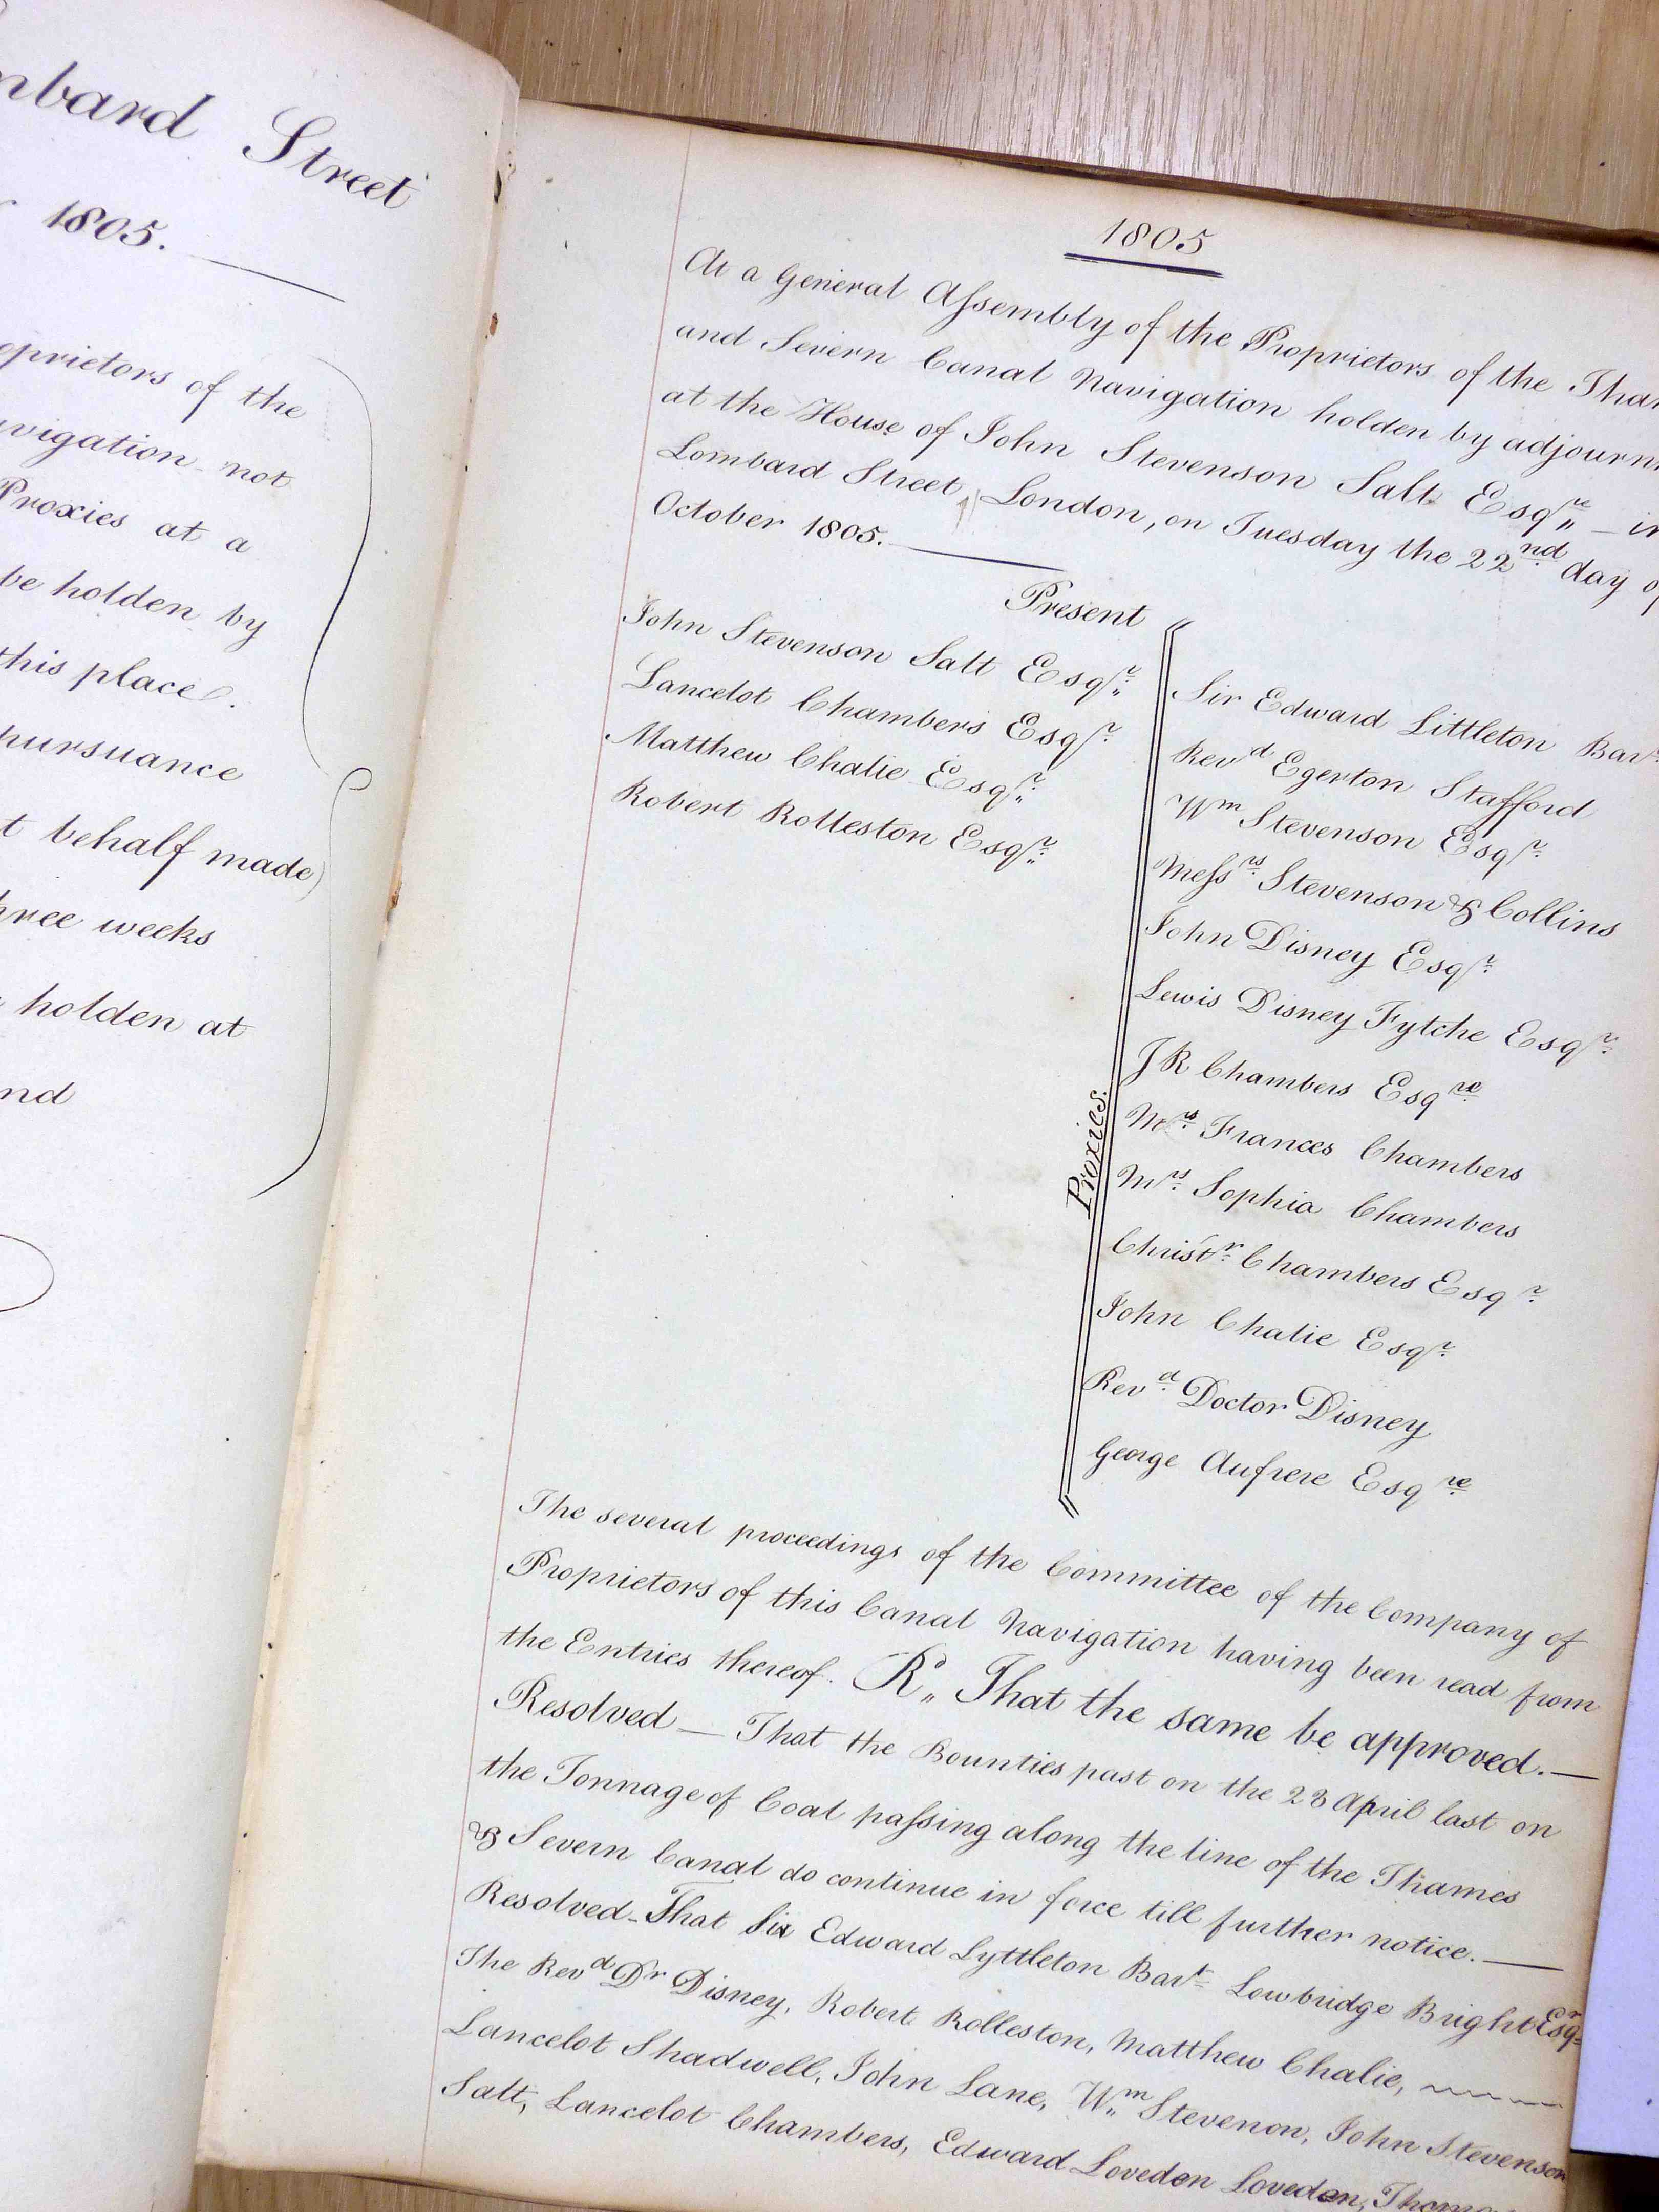 Street
1805.
of the
not
Proxies at a
be holden by
this place.
pursuance
behalf made
weeks
holden at
1805
At a General Assembly of the Proprietors of the
and Severn Canal Navigation holden by
at the House of John Stevenson Salt Esqre —
Lombard Street, London, on Tuesday the 22nd day
October 1805.
Present
John Stevenson Salt Esqr.
Lancelot Chambers Esqr.
Matthew Chalie Esqr.
Robert Rolleston Esqr.
Proxies.
Sir Edward Littleton Bart
Revd Egerton Stafford
Wm Stevenson Esqr.
Messrs. Stevenson & Collins
John Disney Esqr.
Lewis Disney Fytche Esqr.
J R Chambers Esqre
Mrs. Frances Chambers
Mrs. Sophia Chambers
Christr. Chambers Esqr.
John Chalie Esqr.
Revd. Doctor Disney
George Aufrere Esqre
The several proceedings of the Committee of the Company of
Proprietors of this Canal Navigation having been read from
the Entries thereof. Rd. That the same be approved. —
Resolved — That the Bounties past on the 23 April last on
the Tonnage of Coal passing along the line of the Thames
& Severn Canal do continue in force till further notice. —
Resolved - That Sir Edward Lyttleton Bart Lowbridge Bright Esqr
The Revd Dr Disney, Robert Rolleston, Matthew Chalie,
Lancelot Shadwell, John Lane, Wm Stevenon, John Stevenson
Salt, Lancelot Chambers, Edward Loveden Loveden,